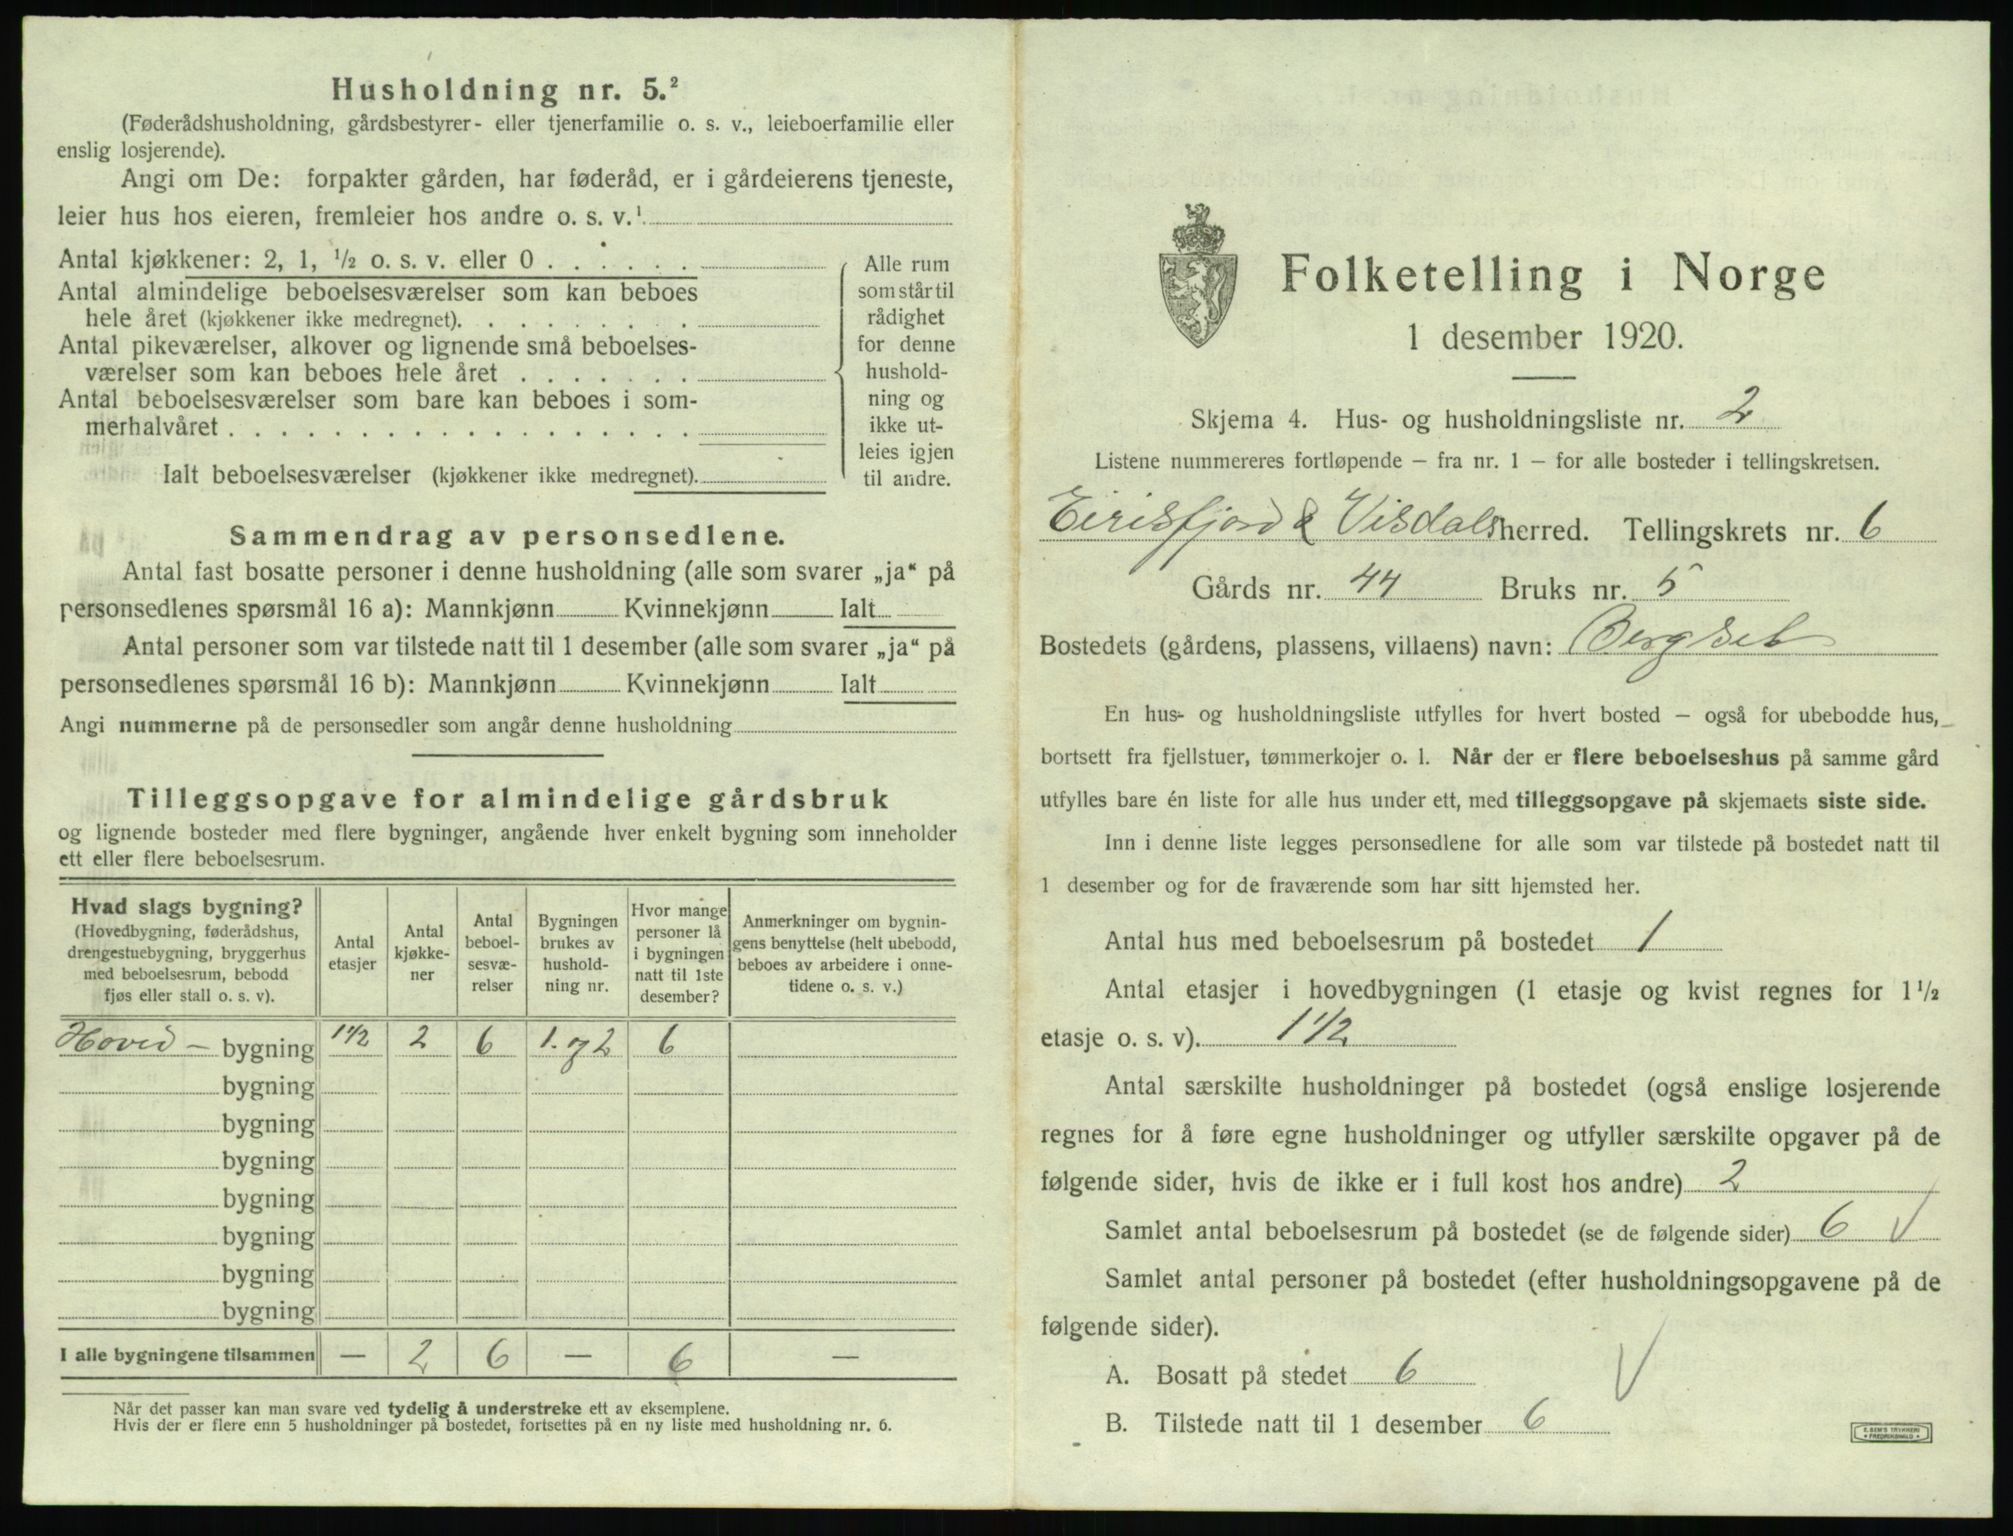 Husholdning nr. 5.²
(Føderådshusholdning, gårdsbestyrer- eller tjenerfamilie o. s. v., leieboerfamilie eller
enslig losjerende).
Angi om De: forpakter gården, har føderåd, er i gårdeierens tjeneste,
leier hus hos eieren, fremleier hos andre o. s. v.¹
Antal kjøkkener: 2, 1, ½ o. s. v. eller 0 . . . . . .
Antal almindelige beboelsesværelser som kan beboes
hele året (kjøkkener ikke medregnet). . . . . . . . .
Antal pikeværelser, alkover og lignende små beboelses-
værelser som kan beboes hele året . . . . . . .
Antal beboelsesværelser som bare kan beboes i som-
merhalvåret . . . . . . . . . . . . . . . . . .
Ialt beboelsesværelser (kjøkkener ikke medregnet).
Alle rum
som står til
rådighet
for denne
hushold-
ning og
ikke ut-
leies igjen
til andre.
Sammendrag av personsedlene.
Antal fast bosatte personer i denne husholdning (alle som svarer „ja“ på
personsedlenes spørsmål 16 a): Mannkjønn Kvinnekjønn Ialt
Antal personer som var tilstede natt til 1 desember (alle som svarer „ja“ på
personsedlenes spørsmål 16 b): Mannkjønn Kvinnekjønn Ialt
Angi nummerne på de personsedler som angår denne husholdning
Tilleggsopgave for almindelige gårdsbruk
og lignende bosteder med flere bygninger, angående hver enkelt bygning som inneholder
ett eller flere beboelsesrum.
Hvad slags bygning?
(Hovedbygning, føderådshus,
drengestuebygning, bryggerhus
med beboelsesrum, bebodd
fjøs eller stall o. s. v).
Antal
etasjer
Antal
kjøkke-
ner
Antal
beboel-
sesvæ-
relser
Bygningen
brukes av
hushold-
ning nr.
Hvor mange
personer lå
i bygningen
natt til 1ste
desember?
Anmerkninger om bygnin-
gens benyttelse (helt ubebodd,
beboes av arbeidere i onne-
tidene o. s. v.)
Hoved - bygning 1½ 2 6 1. og 2 6
bygning
bygning
bygning
bygning
bygning
bygning
bygning
I alle bygningene tilsammen — 2 6 — 6 —
Når det passer kan man svare ved tydelig å understreke ett av eksemplene.
Hvis der er flere enn 5 husholdninger på bostedet, fortsettes på en ny liste med husholdning nr. 6.
Folketelling i Norge
1 desember 1920.
Skjema 4. Hus- og husholdningsliste nr. 2
Listene nummereres fortløpende – fra nr. 1 – for alle bosteder i tellingskretsen.
Eirisfjord & Visdals herred. Tellingskrets nr. 6
Gårds nr. 44 Bruks nr. 5
Bostedets (gårdens, plassens, villaens) navn: Bergset
En hus- og husholdningsliste utfylles for hvert bosted – også for ubebodde hus,
bortsett fra fjellstuer, tømmerkojer o. l. Når der er flere beboelseshus på samme gård
utfylles bare én liste for alle hus under ett, med tilleggsopgave på skjemaets siste side.
Inn i denne liste legges personsedlene for alle som var tilstede på bostedet natt til
1 desember og for de fraværende som har sitt hjemsted her.
Antal hus med beboelsesrum på bostedet 1
Antal etasjer i hovedbygningen (1 etasje og kvist regnes for 1½
etasje o. s. v). 1½
Antal særskilte husholdninger på bostedet (også enslige losjerende
regnes for å føre egne husholdninger og utfyller særskilte opgaver på de
følgende sider, hvis de ikke er i full kost hos andre) 2
Samlet antal beboelsesrum på bostedet (se de følgende sider) 6 √
Samlet antal personer på bostedet (efter husholdningsopgavene på de
følgende sider).
A. Bosatt på stedet 6 √
B. Tilstede natt til 1 desember 6
E. SEM'S TRYKKERI
• FREDRIKSHALD •